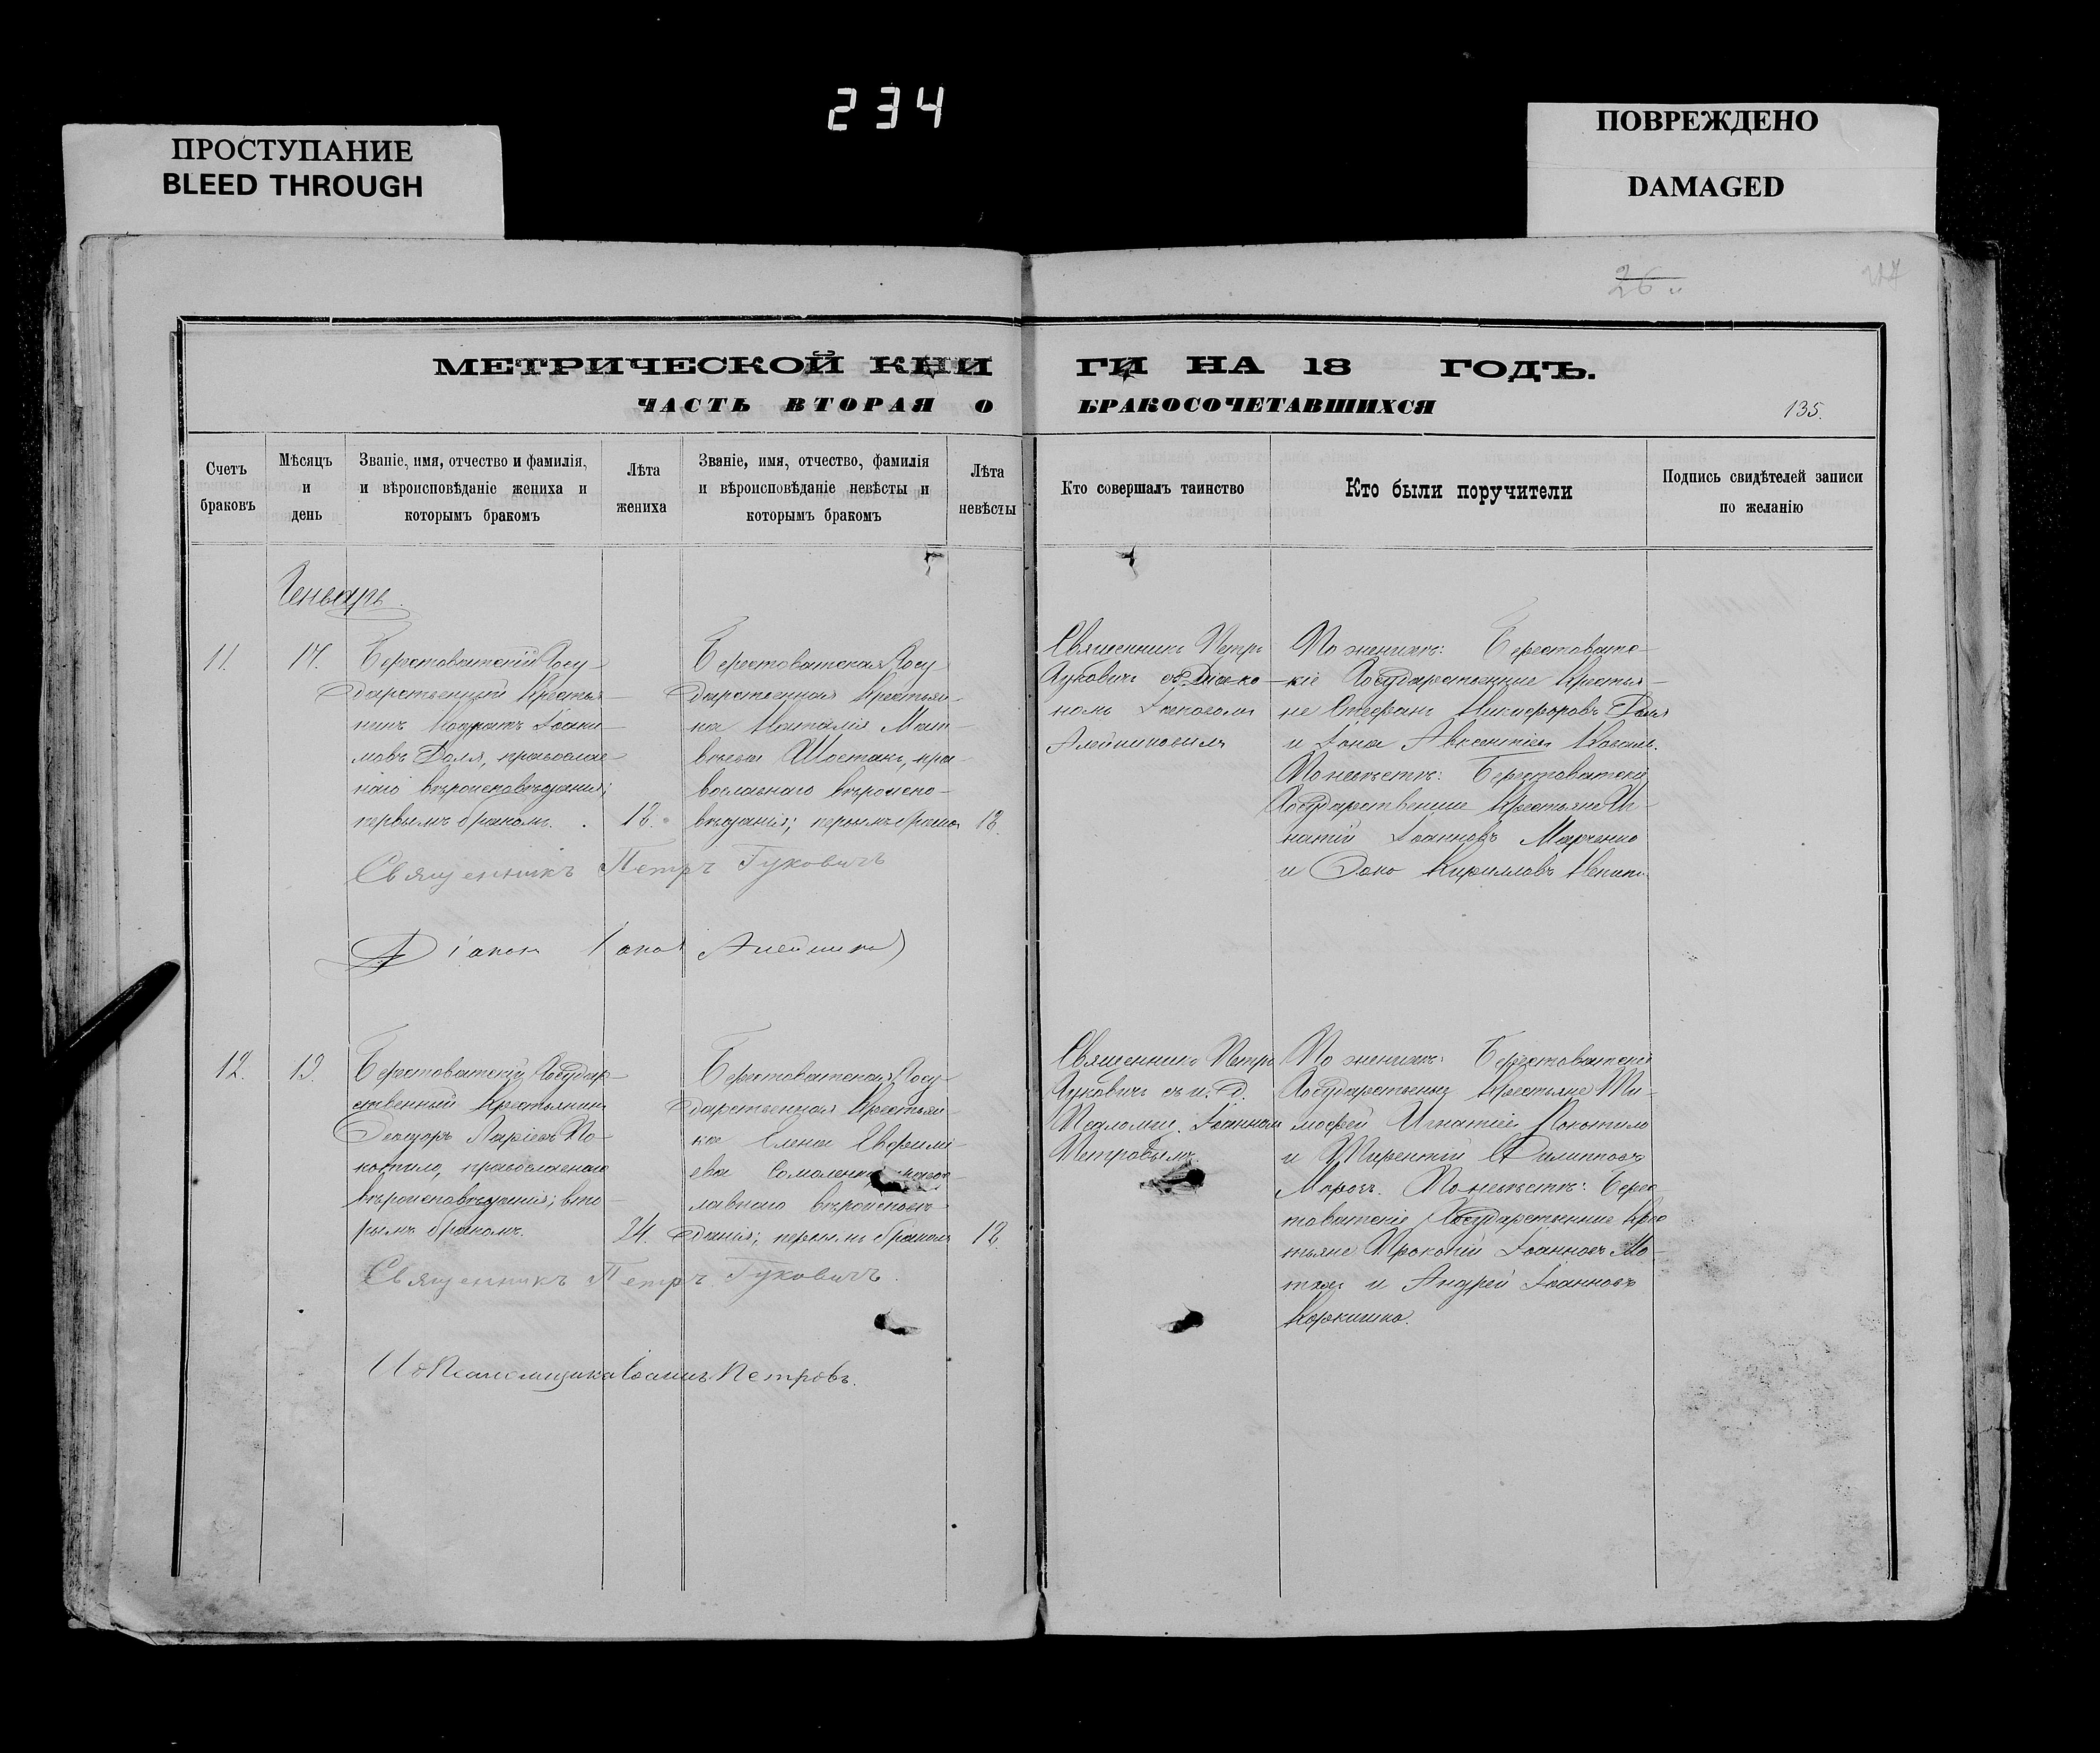 234
ПРОСТУПАНИЕ
BLEED THROUGH
ПОВРЕЖДЕНО
DAMAGED
26
МЕТРИЧЕСКОЙ КНИ
ГИ НА 18 ГОДЪ.
ЧАСТЬ ВТОРАЯ О
БРАКОСОЧЕТАВШИХСЯ
135.
Счетъ
браковъ
Мѣсяцъ
и
день
Званіе, имя, отчество и фамилія,
и вѣроисповѣданіе жениха и
которымъ бракомъ
Лѣта
жениха
Званіе, имя, отчество, фамилія
и вѣроисповѣданіе невѣсты и
которымъ бракомъ
Лѣта
невѣсты
Кто совершалъ таинство
Кто были поручители
Подпись свидѣтелей записи
по желанію
Генварь.
11.
Берестоватскій Госу-
дарственный Крестья-
нинъ Кодратъ Іоаки-
мовъ Доля, православ-
наго вѣроисповѣданія;
первымъ бракомъ.
18.
Берестоватская Госу-
дарственная Крестьян-
ка Наталія Мат-
вѣева Шостакъ, пра-
вославнаго вѣроиспо-
вѣданія; первымъ бракомъ
18.
Священникъ Петръ
Гуковичъ съ Діако-
номъ Іаковомъ
Алейниковымъ
По женихѣ: Берестоватс-
кіе Государственные Крестья-
не Стефанъ Никифоровъ Доля
и Іона Авксентіевъ Коваль.
По невѣстѣ: Берестоватскіе
Государственные Крестьяне Иг-
натій Іоанновъ Марченко
и Кирилловъ
Священникъ Петръ Гуковичъ
Діаконъ Іаковъ Алейниковъ
12.
19.
Берестоватскій Государ-
ственный Крестьянинъ
Феодоръ Ларіевъ По-
котило, православнаго
вѣроисповѣданія; вто-
рымъ бракомъ.
24.
Берестоватская Госу-
дарственная Крестьян-
ка Елена Евфимі-
ева правос-
лавнаго вѣроисповѣ-
данія; первымъ бракомъ
18.
Священникъ Петръ
Гуковичъ съ и. д.
Псаломщ. Іоанномъ
Петровымъ.
По женихѣ: Берестоватскіе
Государственные Крестьяне Ти-
мофей Игнатіевъ Покотило
и Терентій Филипповъ
Морозъ. По невѣстѣ: Берес-
товатскіе Государственные Крес-
тьяне Прокопій Іоанновъ
и Андрей Іоанновъ
Священникъ Петръ Гуковичъ.
И. д. Псаломщика Іоаннъ Петровъ.